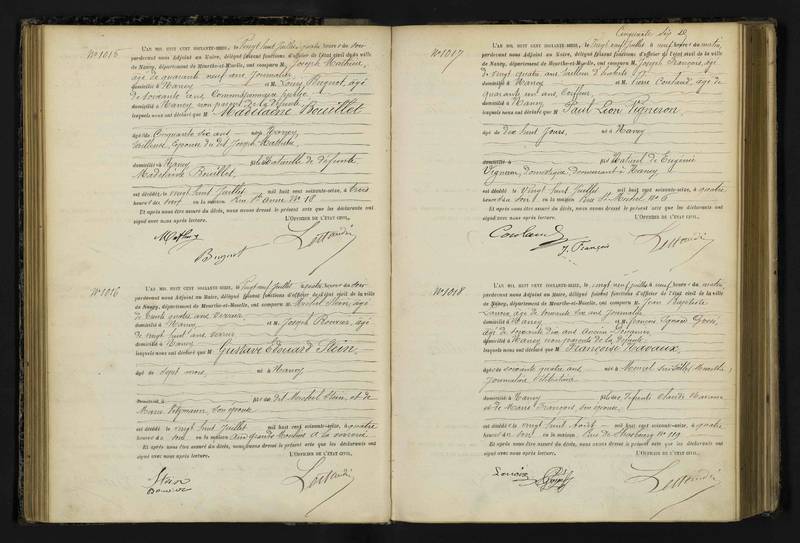 No 1015
L'AN MIL HUIT CENT SOIXANTE-SEIZE, le Vingt huit Juillet, quatre heures du soir
pardevant nous Adjoint au Maire, délégué faisant fonctions d'officier de l'état civil de la ville
de Nancy, département de Meurthe-et-Moselle, ont comparu M. Joseph Mathieu,
âgé de quarante neuf ans, journalier
domicilié à Nancy et M. Louis Buquet, âgé
de soixante ans, Commissionnaire public
domicilié à Nancy non parent de la défunte
lesquels nous ont déclaré que M Madelaine Bouillet
âgé de Cinquante six ans né à Nancy,
tailleuse, épouse du dit Joseph Mathieu
domicilié à Nancy fille Naturelle de défunte
Madelaine Bouillet,
est décédée le vingt huit Juillet mil huit cent soixante-seize, à trois
heures du soir, en la maison Rue Ste Anne No 18
Et après nous être assuré du décès, nous avons dressé le présent acte que les déclarants ont
signé avec nous après lecture. L'OFFICIER DE L'ÉTAT CIVIL,
Mathieu
Buquet
No 1016
L'AN MIL HUIT CENT SOIXANTE-SEIZE, le Vingt neuf Juillet à quatre heures du soir
pardevant nous Adjoint au Maire, délégué faisant fonctions d'officier de l'état civil de la ville
de Nancy, département de Meurthe-et-Moselle, ont comparu M. Michel Stein, âgé
de trente quatre ans verrier
domicilié à Nancy et M. Joseph Bouvier, âgé
de vingt huit ans, verrier
domicilié à Nancy
lesquels nous ont déclaré que M Gustave Edouard Stein,
âgé de sept mois, né à Nancy
domicilié à fils du dit Michel Stein, et de
Marie, son épouse
est décédé le vingt huit Juillet mil huit cent soixante-seize, à quatre
heures du soir en la maison
Et après nous être assuré du décès, nous avons dressé le présent acte que les déclarants ont
signé avec nous après lecture. L'OFFICIER DE L'ÉTAT CIVIL,
Stein
Bouvier
Cinquante Six
No 1017
L'AN MIL HUIT CENT SOIXANTE-SEIZE, le Vingt neuf Juillet, à neuf heures du matin,
pardevant nous Adjoint au Maire, délégué faisant fonctions d'officier de l'état civil de la ville
de Nancy, département de Meurthe-et-Moselle, ont comparu M. Joseph François, âgé
de vingt quatre ans, tailleur d'habits
domicilié à Nancy et M. Pierre Coulaud, âgé de
quarante un ans, Coiffeur,
domicilié à Nancy
lesquels nous ont déclaré que M Paul Léon Vigneron,
âgé de dix huit Jours, né à Nancy
domicilié à fils Naturel de Eugénie
Vigneron, domestique, demeurant à Nancy
est décédé le vingt huit Juillet mil huit cent soixante-seize, à quatre
heures du soir, en la maison Rue St Michel No 6
Et après nous être assuré du décès, nous avons dressé le présent acte que les déclarants ont
signé avec nous après lecture. L'OFFICIER DE L'ÉTAT CIVIL,
Coulaud
J. François
No 1018
L'AN MIL HUIT CENT SOIXANTE-SEIZE, le vingt neuf juillet à neuf heures du matin,
pardevant nous Adjoint au Maire, délégué faisant fonctions d'officier de l'état civil de la ville
de Nancy, département de Meurthe-et-Moselle, ont comparu M. Jean Baptiste
Lorrain, âgé de soixante six ans, journalier
domicilié à Nancy et M. François Ignace
âgé de soixante dix ans, ancien
domicilié à Nancy non parents de la défunte
lesquels nous ont déclaré que M Françoise Havaux,
âgé de soixante quatre ans né à
journalière célibataire
domicilié à Nancy fille de défunts Claude Havaux
et de Marie François, son épouse,
est décédée le vingt huit Août mil huit cent soixante-seize, à quatre
heures du soir en la maison Rue de Strasbourg No 119
Et après nous être assuré du décès, nous avons dressé le présent acte que les déclarants ont
signé avec nous après lecture. L'OFFICIER DE L'ÉTAT CIVIL,
Lorrain